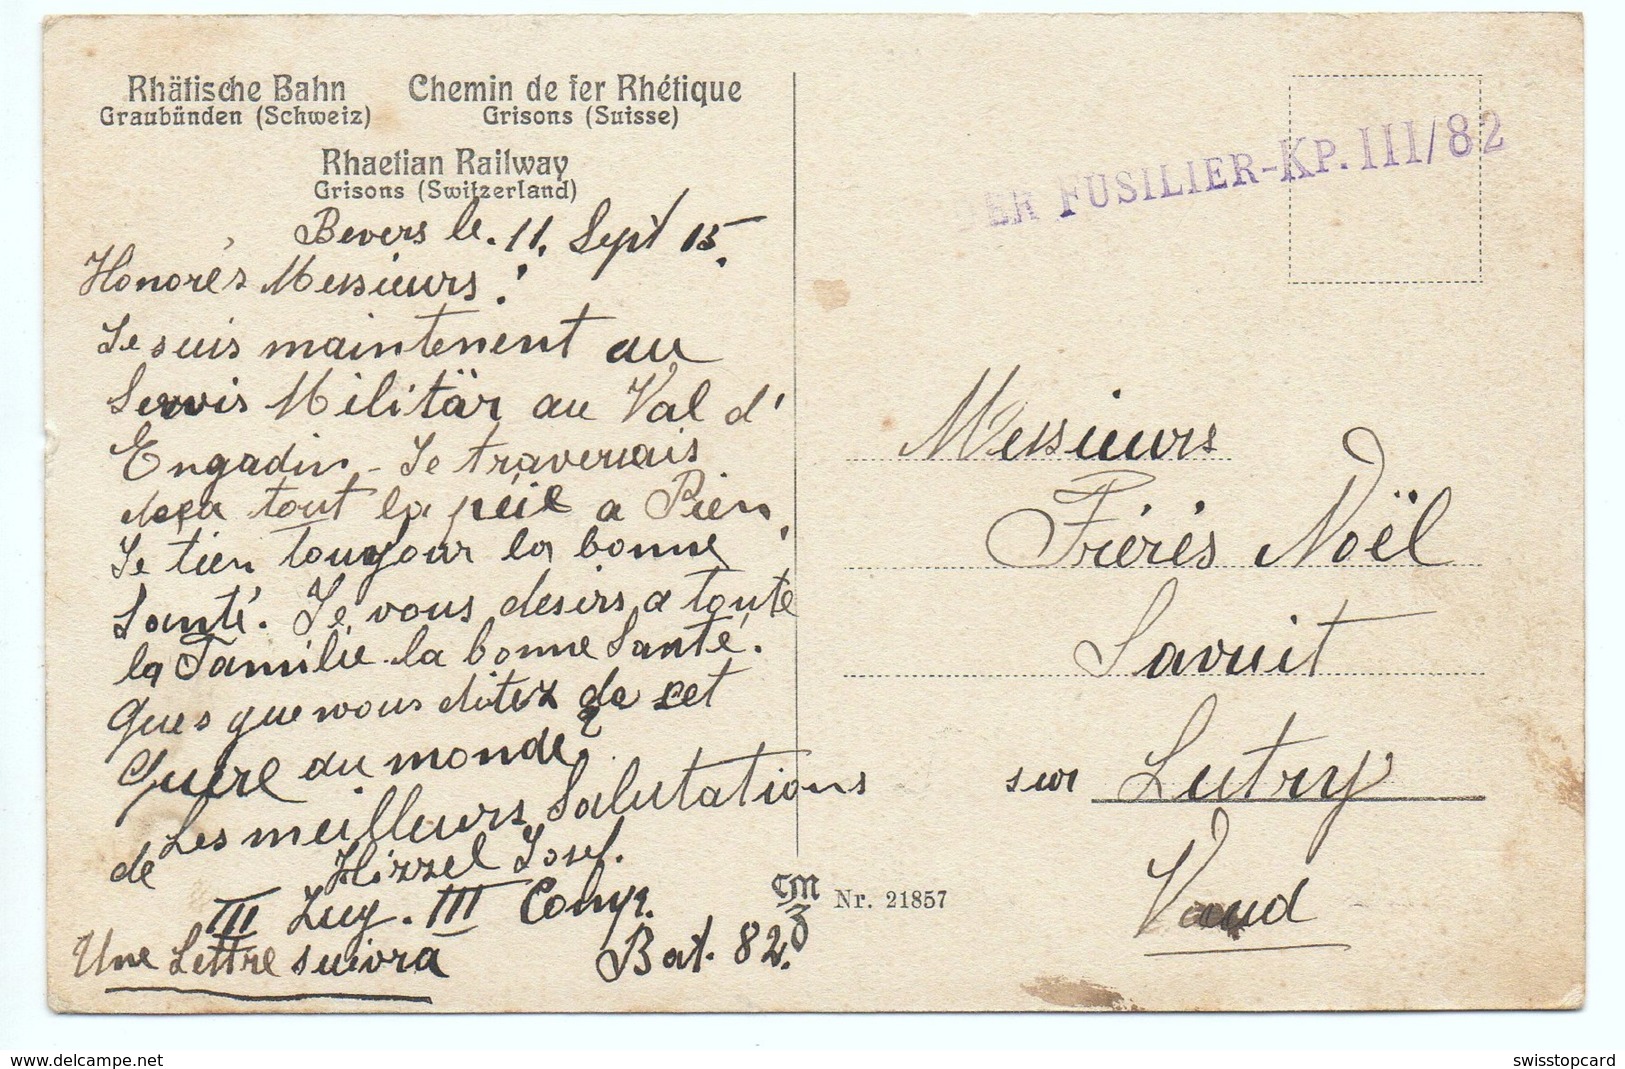 Rhätische Bahn
Graubünden (Schweiz)
Chemin de fer Rhétique
Grisons (Suisse)
Rhaetian Railway
Grisons (Switzerland)
Bevers le. 11. Sept 15.
Honorés Messieurs!
Je suis maintenent au
Servis Militär au Val d'
Engadin - Je traversais
deja tout la péil a Pien.
Je tien toujour la bonne
Santé. Je vous desirs a toute
la Familie la bonne Santé.
Ques que vous ditez de cet
Guere au monde?
Les meilleurs Salutations
de Hizzel Josef.
III Zug. III Comp.
Bat. 82.
Une Lettre suivra
ER FUSILIER-KP. III/82
Messieurs
Fréres Noël
Savuit
sur Lutry
Vaud
Nr. 21857
delcampe.net
swisstopcard